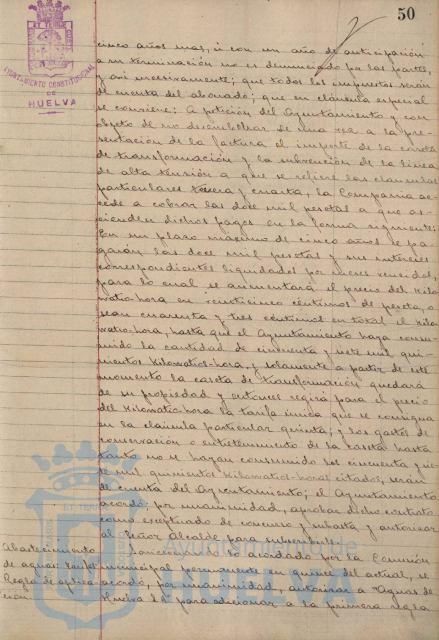 50
AYUNTAMIENTO CONSTITUCIONAL
DE
HUELVA
cinco años mas, si con un año de anticipación
a su terminación no es denunciado por las partes,
y así sucesivamente; que todos los impuestos serán
de cuenta del abonado; que en cláusula especial
se conviene: A petición del Ayuntamiento y con
objeto de no desembolsar de una vez a la pre-
sentación de la factura el importe de la caseta
de transformación y la subvención de la linea
de alta tensión a que se refiere las cláusulas
particulares tercera y cuarta, la Compañia ac-
cede a cobrar las doce mil pesetas a que as-
cienden dichos pagos en la forma siguiente:
En un plazo máximo de cinco años se pa-
garán las doce mil pesetas y sus intereses
correspondientes liquidados por meses vencidos,
para lo cual se aumentará el precio del kilo-
watio-hora en veinticinco céntimos de peseta, o
sean cuarenta y tres céntimos en total el kilo-
watio-hora, hasta que el Ayuntamiento haya consu-
mido la cantidad de cincuenta y siete mil qui-
nientos kilowatios-hora, y solamente a partir de este
momento la caseta de transformación quedará
de su propiedad y entonces regirá para el precio
del kilowatio-hora la tarifa única que se consigna
en la cláusula particular quinta; y los gastos de
conservación o entretenimiento de la caseta hasta
tanto no se hayan consumido los cincuenta y sie-
te mil quinientos kilowatios-horas citados, serán
de cuenta del Ayuntamiento; el Ayuntamiento
acordó, por unanimidad, aprobar dicho contrato
como exceptuado de concurso y subasta y autorizar
al Señor Alcalde para suscribirlo.
Abastecimiento
de aguas:
Regla de aplica-
ción
lo acordado por la Comisión
municipal permanente en quince del actual, se
acordó, por unanimidad, autorizar a "Aguas de
Huelva" para adicionar a la primera regla
Ayuntamiento de
HUELVA